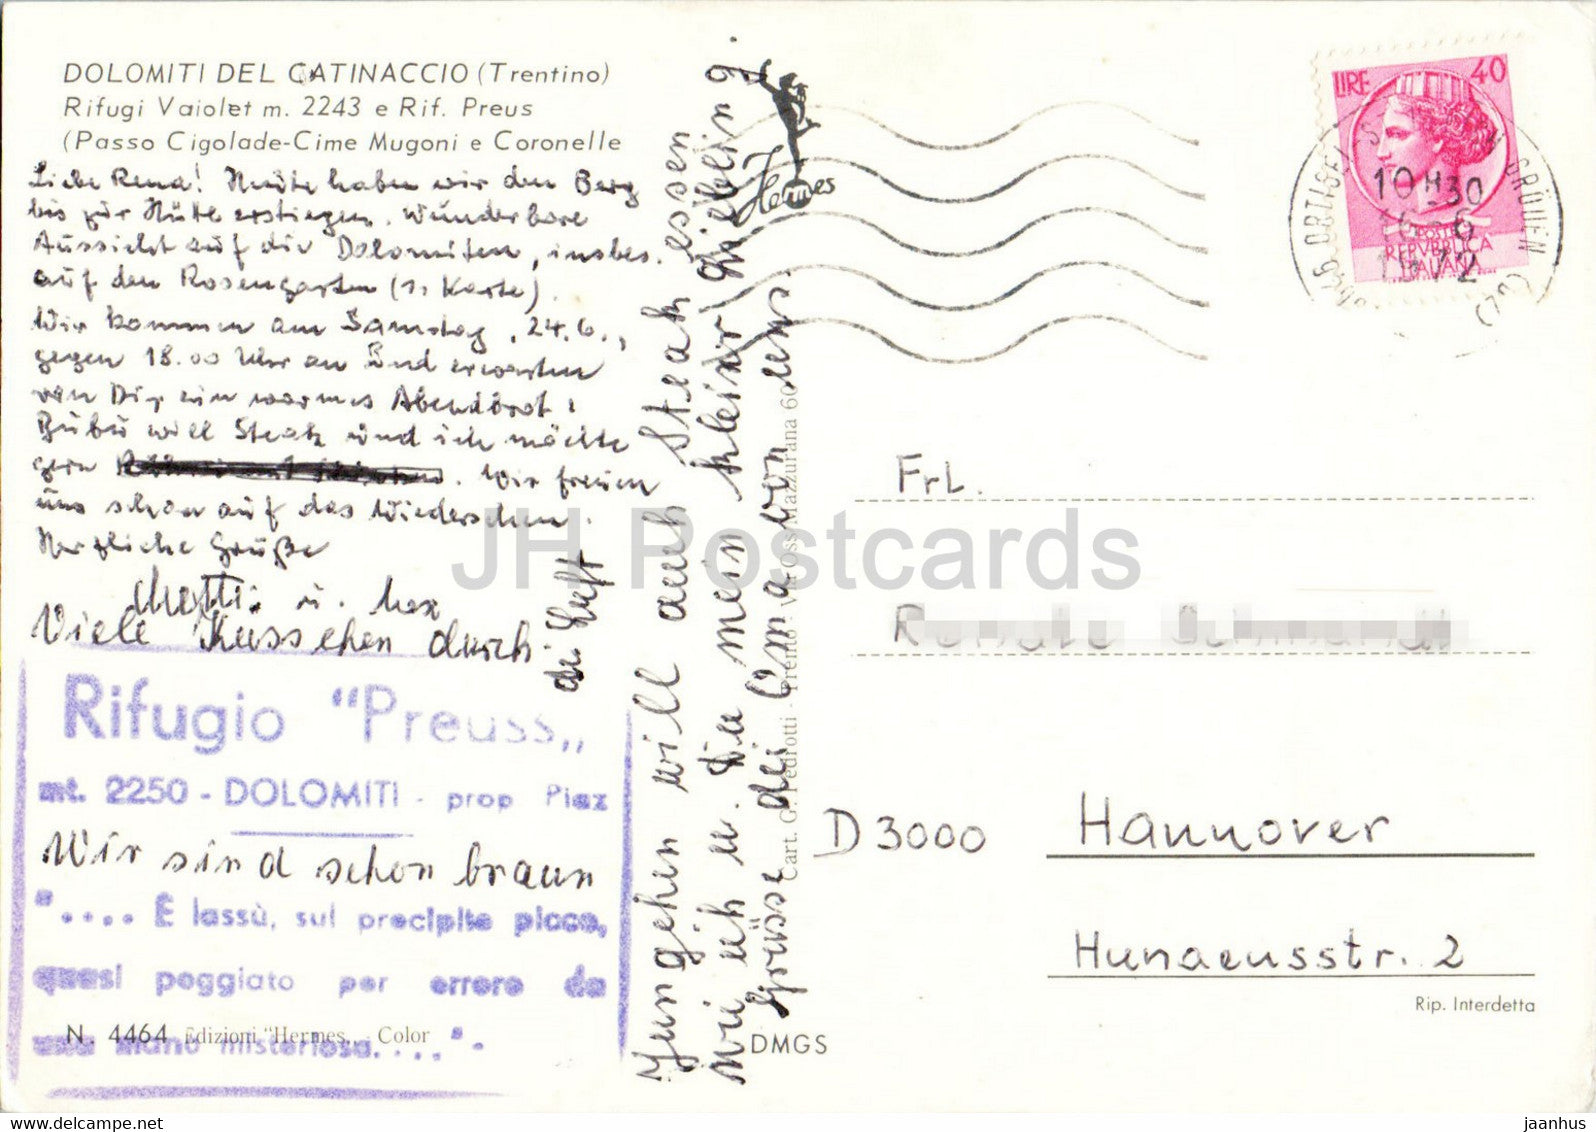 DOLOMITI DEL CATINACCIO (Trentino)
Rifugi Vaiolet m. 2243 e Rif. Preus
(Passo Cigolade-Cime Mugoni e Coronelle
Liebe Rena! Heute haben wir den Berg
bis zur Hütte erstiegen. Wunderbare
Aussicht auf die Dolomiten, insbes.
auf den Rosengarten (1. Karte).
Wir kommen am Samstag, 24.6.,
gegen 18.00 Uhr an und erwarten
von Dir ein warmes Abendbrot!
Bubu will Steak und ich möchte
gern . Wir freuen
uns schon auf das Wiedersehen.
Herzliche Grüße
Mutti u.
Viele Küsschen durch
die Luft
Rifugio "Preuss„
mt. 2250 - DOLOMITI - prop Piaz
Wir sind schon braun
".... È lassù, sul precipite picco,
quasi poggiato per errore da
una mano misteriosa....".
N. 4464 Edizioni "Hermes„ - Color
Jungchen will auch Steak essen
wie ich u. Du mein kleiner Liebling.
Grüsse die Oma von uns!
Cart. G. Pedrotti - Trento - Via Oss Mazzurana 60
DMGS
Hermes
LIRE 40
POSTE
REPVBBLICA
ITALIANA
ORTISEI
GRÖDEN
10 H 30
6
72
Frl.
D 3000 Hannover
Hunaeusstr. 2
Rip. Interdetta
JH Postcards
jaanhus